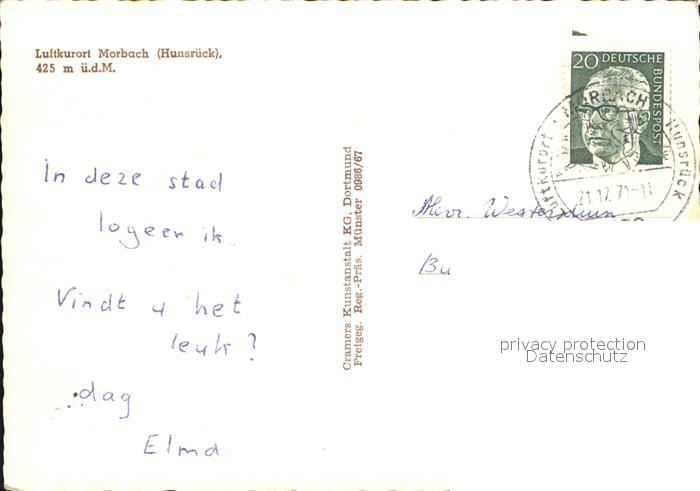 Luftkurort Morbach (Hunsrück),
425 m ü.d.M.
20 DEUTSCHE
BUNDESPOST
MORBACH
Luftkurort · Hunsrück
21.12.71-11
In deze stad
logeer ik
Vindt u het
leuk?
dag
Cramers Kunstanstalt KG, Dortmund
Freigeg. Reg.-Präs. Münster 0986/67
Bu
privacy protection
Datenschutz